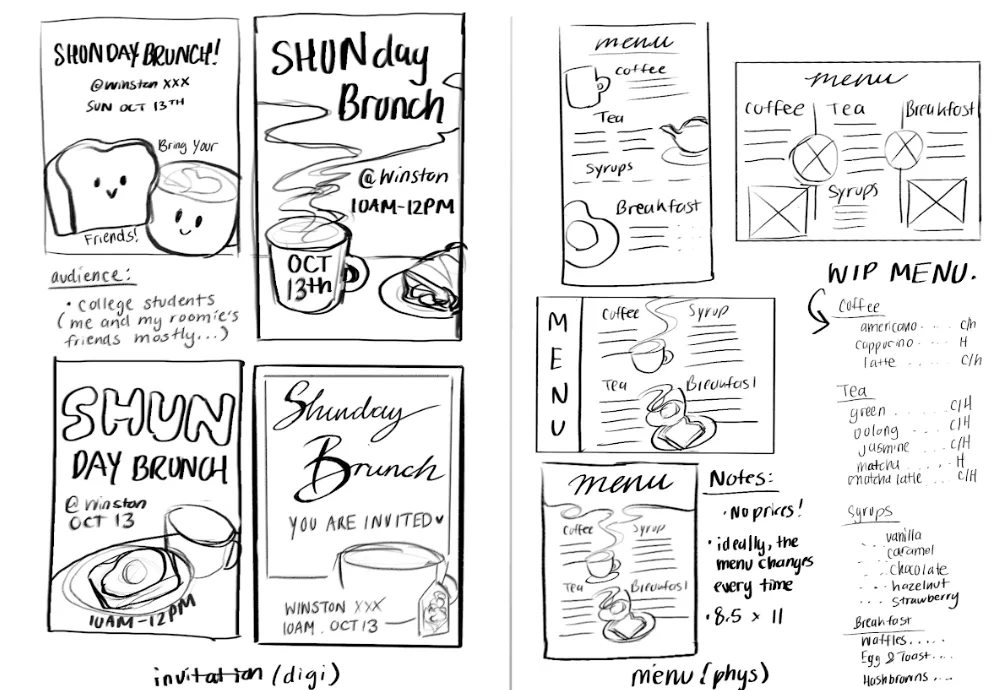 SHUNDAY BRUNCH!
@Winston XXX
SUN OCT 13TH
Bring Your
Friends!
SHUNday
Brunch
@Winston
10AM-12PM
OCT
13th
audience:
• college students
(me and my roomie's
friends mostly...)
SHUN
DAY BRUNCH
@Winston
OCT 13
10AM-12PM
Shunday
Brunch
YOU ARE INVITED♥
WINSTON XXX
10AM. OCT 13
invitation (digi)
menu
coffee
Tea
Syrups
Breakfast
menu
coffee
Tea
Breakfast
Syrups
MENU
Coffee
Syrup
Tea
Breakfast
menu
Coffee
Syrup
Tea
Breakfast
Notes:
• No prices!
• ideally, the
menu changes
every time
• 8.5 x 11
menu (phys)
WIP MENU.
Coffee
americano .... c/h
cappucino ... H
latte .... c/h
Tea
green ....... C/H
oolong .... C/H
Jasmine .... C/H
matcha ..... H
matcha latte ... C/H
Syrups
... vanilla
... caramel
... chocolate
... hazelnut
... strawberry
Breakfast
Waffles.....
Egg & Toast...
Hashbrowns ...